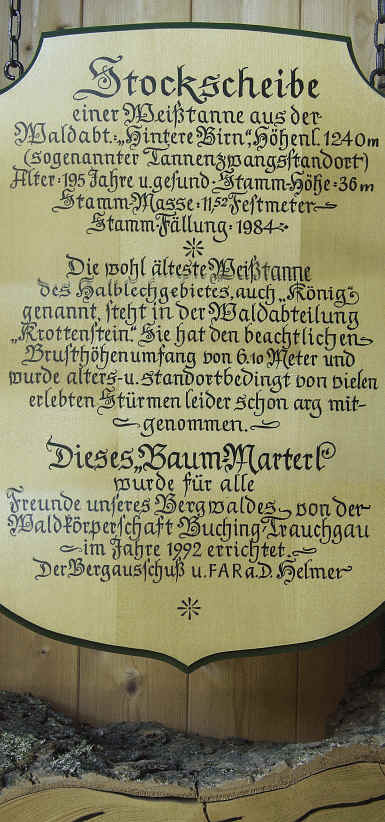 Stockscheibe
einer Weißtanne aus der
Waldabt.: „Hintere Birn", Höhenl. 1240 m
(sogenannter Tannenzwangsstandort)
Alter: 195 Jahre u. gesund. Stamm-Höhe: 36 m
Stamm-Masse: 11,52 Festmeter
Stamm-Fällung: 1984
Die wohl älteste Weißtanne
des Halblechgebietes, auch „König"
genannt, steht in der Waldabteilung
„Krottenstein." Sie hat den beachtlichen
Brusthöhenumfang von 6.10 Meter und
wurde alters- u. standortbedingt von vielen
erlebten Stürmen leider schon arg mit-
genommen.
Dieses „Baum-Marterl"
wurde für alle
Freunde unseres Bergwaldes von der
Waldkörperschaft Buching-Trauchgau
im Jahre 1992 errichtet.
Der Bergausschuß u. FAR a.D. Helmer